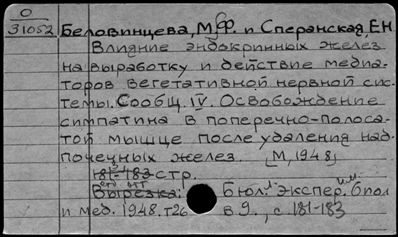 О
31052
Беловинцева, М.Ф. и Сперанская, Е.Н.
Влияние эндокринных желез
на выработку и действие медиа-
торов вегетативной нервной сис-
темы. Сообщ. IV. Освобождение
симпатина в поперечно-полоса-
той мышце после удаления над-
почечных желез. [М, 1948]
181-183 стр.
отд. отт.
Вырезка: Бюл. экспер. биол
и мед. 1948. т26 в 9., с 181-183